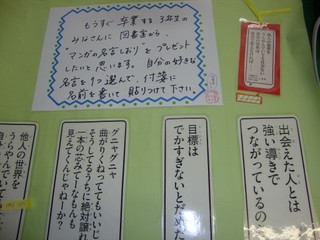 もうすぐ 卒業する 3年生の
みなさんに 図書室から、
"マンガの名言しおり"を プレゼント
したいと 思います。 自分の好きな
名言を 1つ選んで、付箋に
名前を書いて 貼りつけて下さい。
出会えた人とは
強い導きで
つながっているの
目標は
でかすぎないとだめだ
グニャグニャ
曲がりくねっててもいいじ
そうしてるうちに絶対譲れ
一本の芯みてーなもんも
見えてくんじゃねーか？
他人の世界を